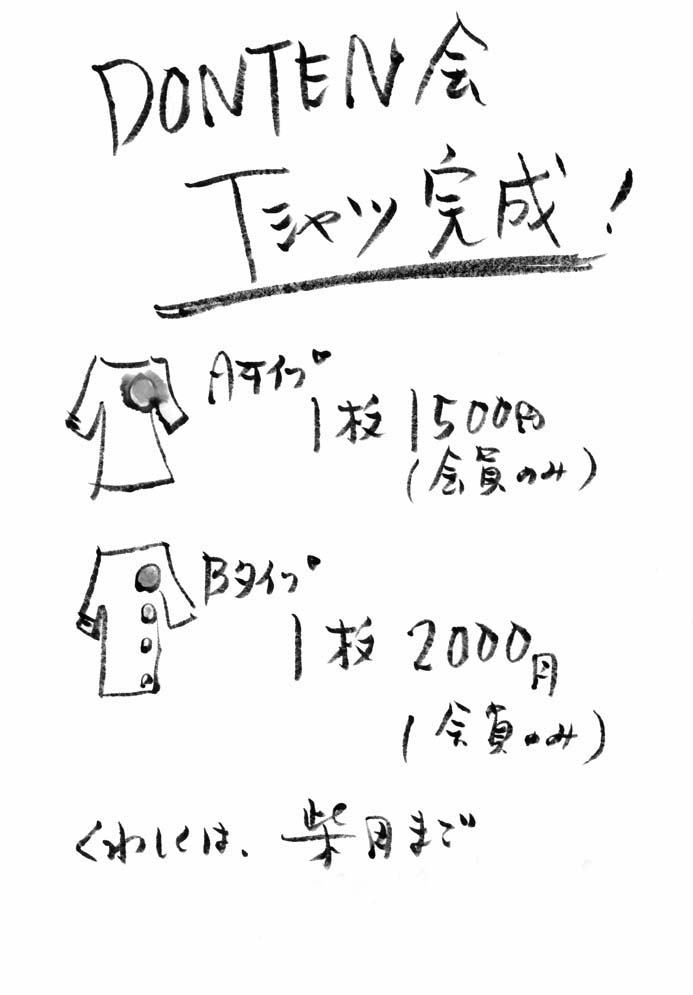 DONTEN会
Tシャツ完成!
Aタイプ
1枚 1500円
(会員のみ)
Bタイプ
1枚 2000円
(会員のみ)
くわしくは、柴田まで